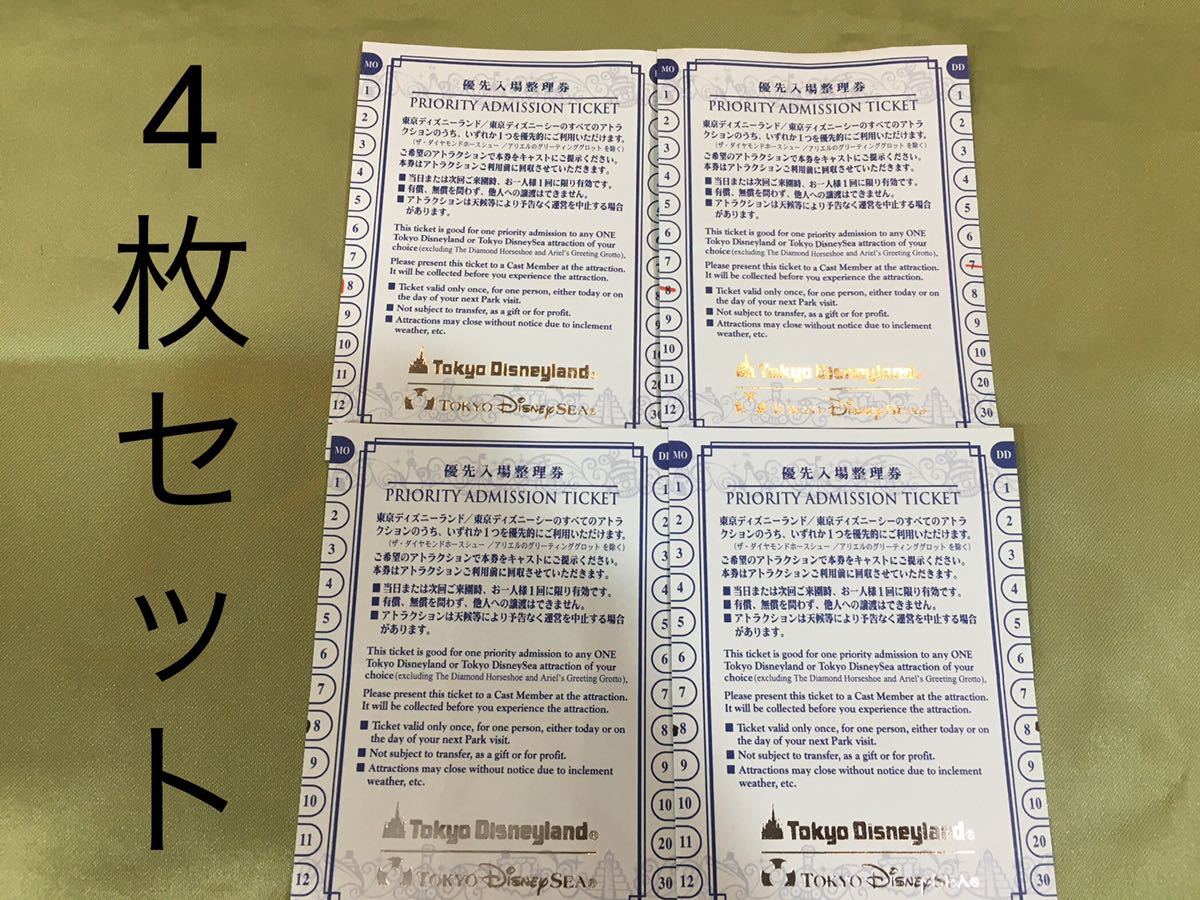 4枚セット
MO
1
2
3
4
8
9
10
11
12
優先入場整理券
PRIORITY ADMISSION TICKET
東京ディズニーランド/東京ディズニーシーのすべてのアトラ
クションのうち、いずれか1つを優先的にご利用いただけます。
(ザ・ダイヤモンドホースシュー/アリエルのグリーティンググロットを除く)
ご希望のアトラクションで本券をキャストにご提示ください。
本券はアトラクションご利用前に回収させていただきます。
■ 当日または次回ご来園時、お一人様1回に限り有効です。
■ 有償、無償を問わず、他人への譲渡はできません。
■ アトラクションは天候等により予告なく運営を中止する場合
があります。
This ticket is good for one priority admission to any ONE
Tokyo Disneyland or Tokyo DisneySea attraction of your
choice (excluding The Diamond Horseshoe and Ariel's Greeting Grotto).
Please present this ticket to a Cast Member at the attraction.
It will be collected before you experience the attraction.
■ Ticket valid only once, for one person, either today or on
the day of your next Park visit.
■ Not subject to transfer, as a gift or for profit.
■ Attractions may close without notice due to inclement
weather, etc.
Tokyo Disneyland®
TOKYO DisneySEA®
MO
1
2
3
4
5
6
7
8
9
10
11
12
優先入場整理券
PRIORITY ADMISSION TICKET
東京ディズニーランド/東京ディズニーシーのすべてのアトラ
クションのうち、いずれか1つを優先的にご利用いただけます。
(ザ・ダイヤモンドホースシュー/アリエルのグリーティンググロットを除く)
ご希望のアトラクションで本券をキャストにご提示ください。
本券はアトラクションご利用前に回収させていただきます。
■ 当日または次回ご来園時、お一人様1回に限り有効です。
■ 有償、無償を問わず、他人への譲渡はできません。
■ アトラクションは天候等により予告なく運営を中止する場合
があります。
This ticket is good for one priority admission to any ONE
Tokyo Disneyland or Tokyo DisneySea attraction of your
choice (excluding The Diamond Horseshoe and Ariel's Greeting Grotto).
Please present this ticket to a Cast Member at the attraction.
It will be collected before you experience the attraction.
■ Ticket valid only once, for one person, either today or on
the day of your next Park visit.
■ Not subject to transfer, as a gift or for profit.
■ Attractions may close without notice due to inclement
weather, etc.
Tokyo Disneyland®
DisneySEA®
DD
1
2
3
4
5
6
7
8
9
10
20
30
MO
1
2
3
4
5
6
7
8
9
10
11
12
優先入場整理券
PRIORITY ADMISSION TICKET
東京ディズニーランド/東京ディズニーシーのすべてのアトラ
クションのうち、いずれか1つを優先的にご利用いただけます。
(ザ・ダイヤモンドホースシュー/アリエルのグリーティンググロットを除く)
ご希望のアトラクションで本券をキャストにご提示ください。
本券はアトラクションご利用前に回収させていただきます。
■ 当日または次回ご来園時、お一人様1回に限り有効です。
■ 有償、無償を問わず、他人への譲渡はできません。
■ アトラクションは天候等により予告なく運営を中止する場合
があります。
This ticket is good for one priority admission to any ONE
Tokyo Disneyland or Tokyo DisneySea attraction of your
choice (excluding The Diamond Horseshoe and Ariel's Greeting Grotto).
Please present this ticket to a Cast Member at the attraction.
It will be collected before you experience the attraction.
■ Ticket valid only once, for one person, either today or on
the day of your next Park visit.
■ Not subject to transfer, as a gift or for profit.
■ Attractions may close without notice due to inclement
weather, etc.
Tokyo Disneyland®
TOKYO DisneySEA®
1
2
3
4
5
6
7
8
9
10
20
30
MO
1
2
3
4
5
6
7
8
9
10
11
12
優先入場整理券
PRIORITY ADMISSION TICKET
東京ディズニーランド/東京ディズニーシーのすべてのアトラ
クションのうち、いずれか1つを優先的にご利用いただけます。
(ザ・ダイヤモンドホースシュー/アリエルのグリーティンググロットを除く)
ご希望のアトラクションで本券をキャストにご提示ください。
本券はアトラクションご利用前に回収させていただきます。
■ 当日または次回ご来園時、お一人様1回に限り有効です。
■ 有償、無償を問わず、他人への譲渡はできません。
■ アトラクションは天候等により予告なく運営を中止する場合
があります。
This ticket is good for one priority admission to any ONE
Tokyo Disneyland or Tokyo DisneySea attraction of your
choice (excluding The Diamond Horseshoe and Ariel's Greeting Grotto).
Please present this ticket to a Cast Member at the attraction.
It will be collected before you experience the attraction.
■ Ticket valid only once, for one person, either today or on
the day of your next Park visit.
■ Not subject to transfer, as a gift or for profit.
■ Attractions may close without notice due to inclement
weather, etc.
Tokyo Disneyland®
TOKYO DisneySEA®
DD
1
2
3
4
5
6
7
8
9
10
20
30